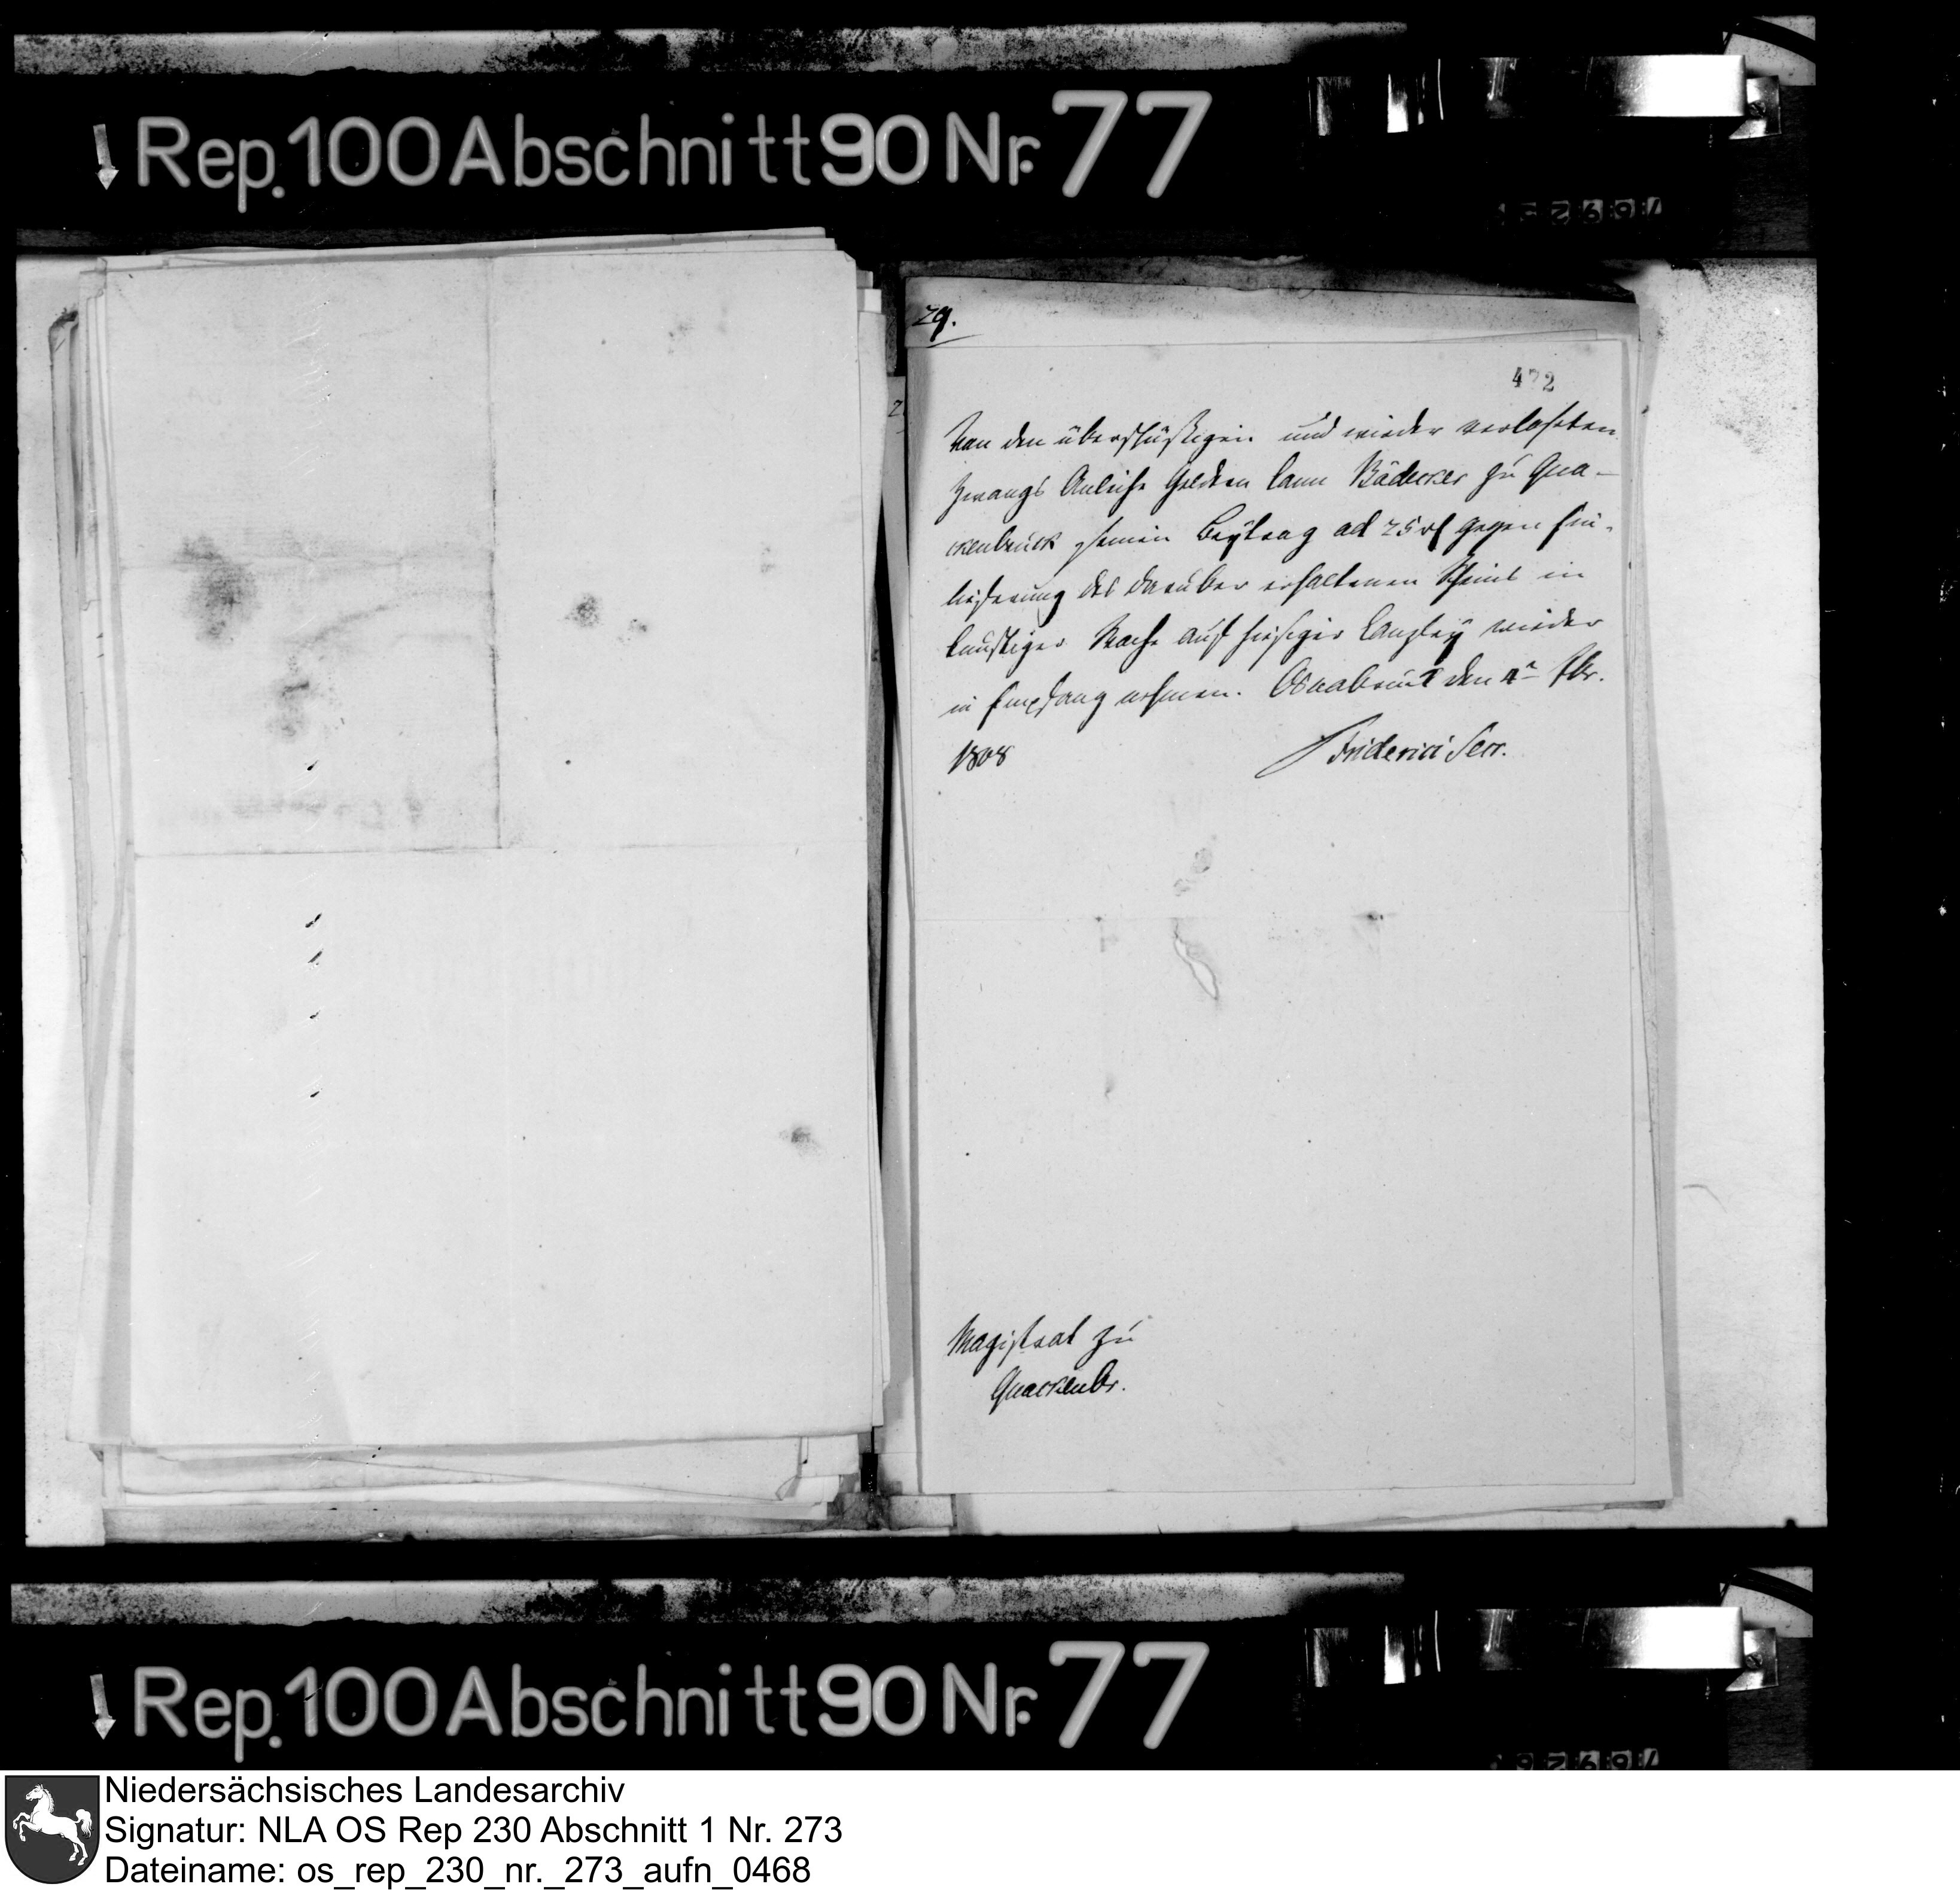 Rep. 100 Abschnitt 90 Nr. 77
29.
472
Von den überflüßigen und wieder verlohsten
Zwangs Anleihe Geldern kann Bädecker zu Qua-
ckenbrück seinen Beytrag ad 25 rt gegen Ein-
lieferung des darüber erhaltenen Scheins in
künftiger Woche auf hiesiger Canzley wieder
in Empfang nehmen. Osnabrück den 4n 7br.
1808
Friderici Secr.
Magistrat zu
Quackenbr.
Rep. 100 Abschnitt 90 Nr. 77
Niedersächsisches Landesarchiv
Signatur: NLA OS Rep 230 Abschnitt 1 Nr. 273
Dateiname: os_rep_230_nr._273_aufn_0468